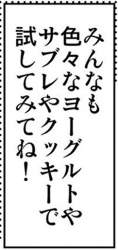 みんなも
色々なヨーグルトや
サブレやクッキーで
試してみてね！